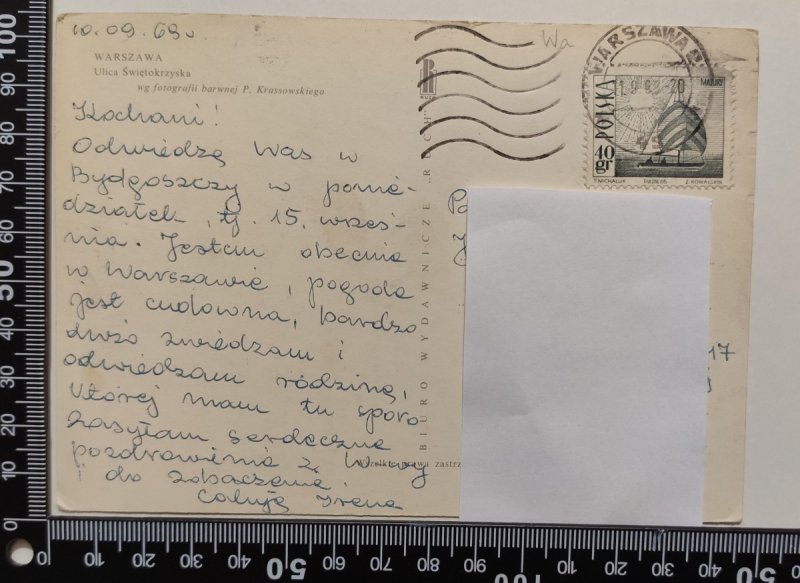 10.09.69r.
WARSZAWA
Ulica Świętokrzyska
wg fotografii barwnej P. Krassowskiego
Kochani!
Odwiedzę Was w
Bydgoszczy w ponie-
działek, tj. 15. wrześ-
nia. Jestem obecnie
w Warszawie, pogoda
jest cudowna, bardzo
dużo zwiedzam i
odwiedzam rodzinę,
której mam tu sporo
Zasyłam serdeczne
pozdrowienia z W-wy
i do zobaczenia.
Całuję Irena
BIURO WYDAWNICZE „RUCH”
RUCH
Wszelkie prawa zastrz
Wa
WARSZAWA
POLSKA
MAZURY
40
gr
T. MICHALUK PWPW-66 Z. KOWALSKI
17
100
90
80
70
60
50
40
30
20
10
0
0
10
20
30
40
50
60
70
80
90
100
10
20
30
40
50